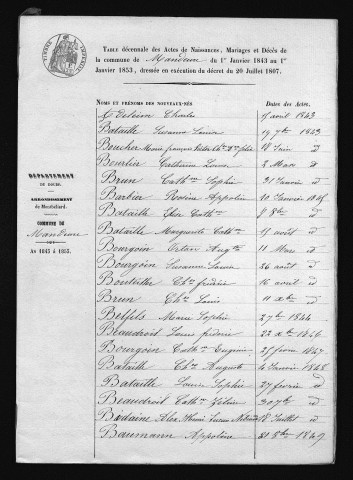 TIMBRE IMPÉRIAL
TABLE décennale des Actes de Naissances, Mariages et Décès de
la commune de Mandeure du 1er Janvier 1843 au 1er
Janvier 1853, dressée en exécution du décret du 20 Juillet 1807.
DÉPARTEMENT
DU DOUBS.
ARRONDISSEMENT
de Montbéliard.
COMMUNE DE
Mandeure
AN 1843 à 1853.
NOMS ET PRÉNOMS DES NOUVEAUX-NÉS Dates des Actes.
Charles 11 avril 1843
Bataille Suzanne Louise 19 7bre 1843
Boucher Marie françoise 18 Juin d
Bourlier Catherine Louise 8 Mars d
Brun Cathne Sophie 21 Janvier d
Barbier Rosine Appoline 10 Janvier
Bataille Cathne 9 8bre d
Bataille Marguerite Cathne 15 août d
Bourgoin Augte 11 Mars d
Bourgoin Suzanne Laure 26 août d
Boutillier Chs frédéric 16 avril d
Brun Chs Louis 11 xbre d
Belfils Marie Sophie 27 7bre 1844
Beaudroit Louise frédéric 22 xbre 1846
Bourgoin Cathne Eugénie 25 février 1847
Bataille Chs Auguste 4 Janvier 1848
Bataille Louise Sophie 27 février d
Beaudroit Cathne 30 7bre d
Bodaine Alex Henri Lucien 18 Juillet d
Baumann Appoline 21 8bre 1849